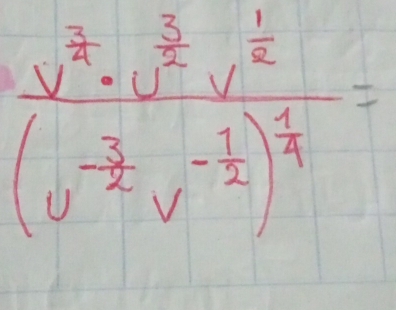 v^{3/4} · u^{3/2} v^{1/2}
(u^{-3/2} v^{-1/2})^{1/4} =